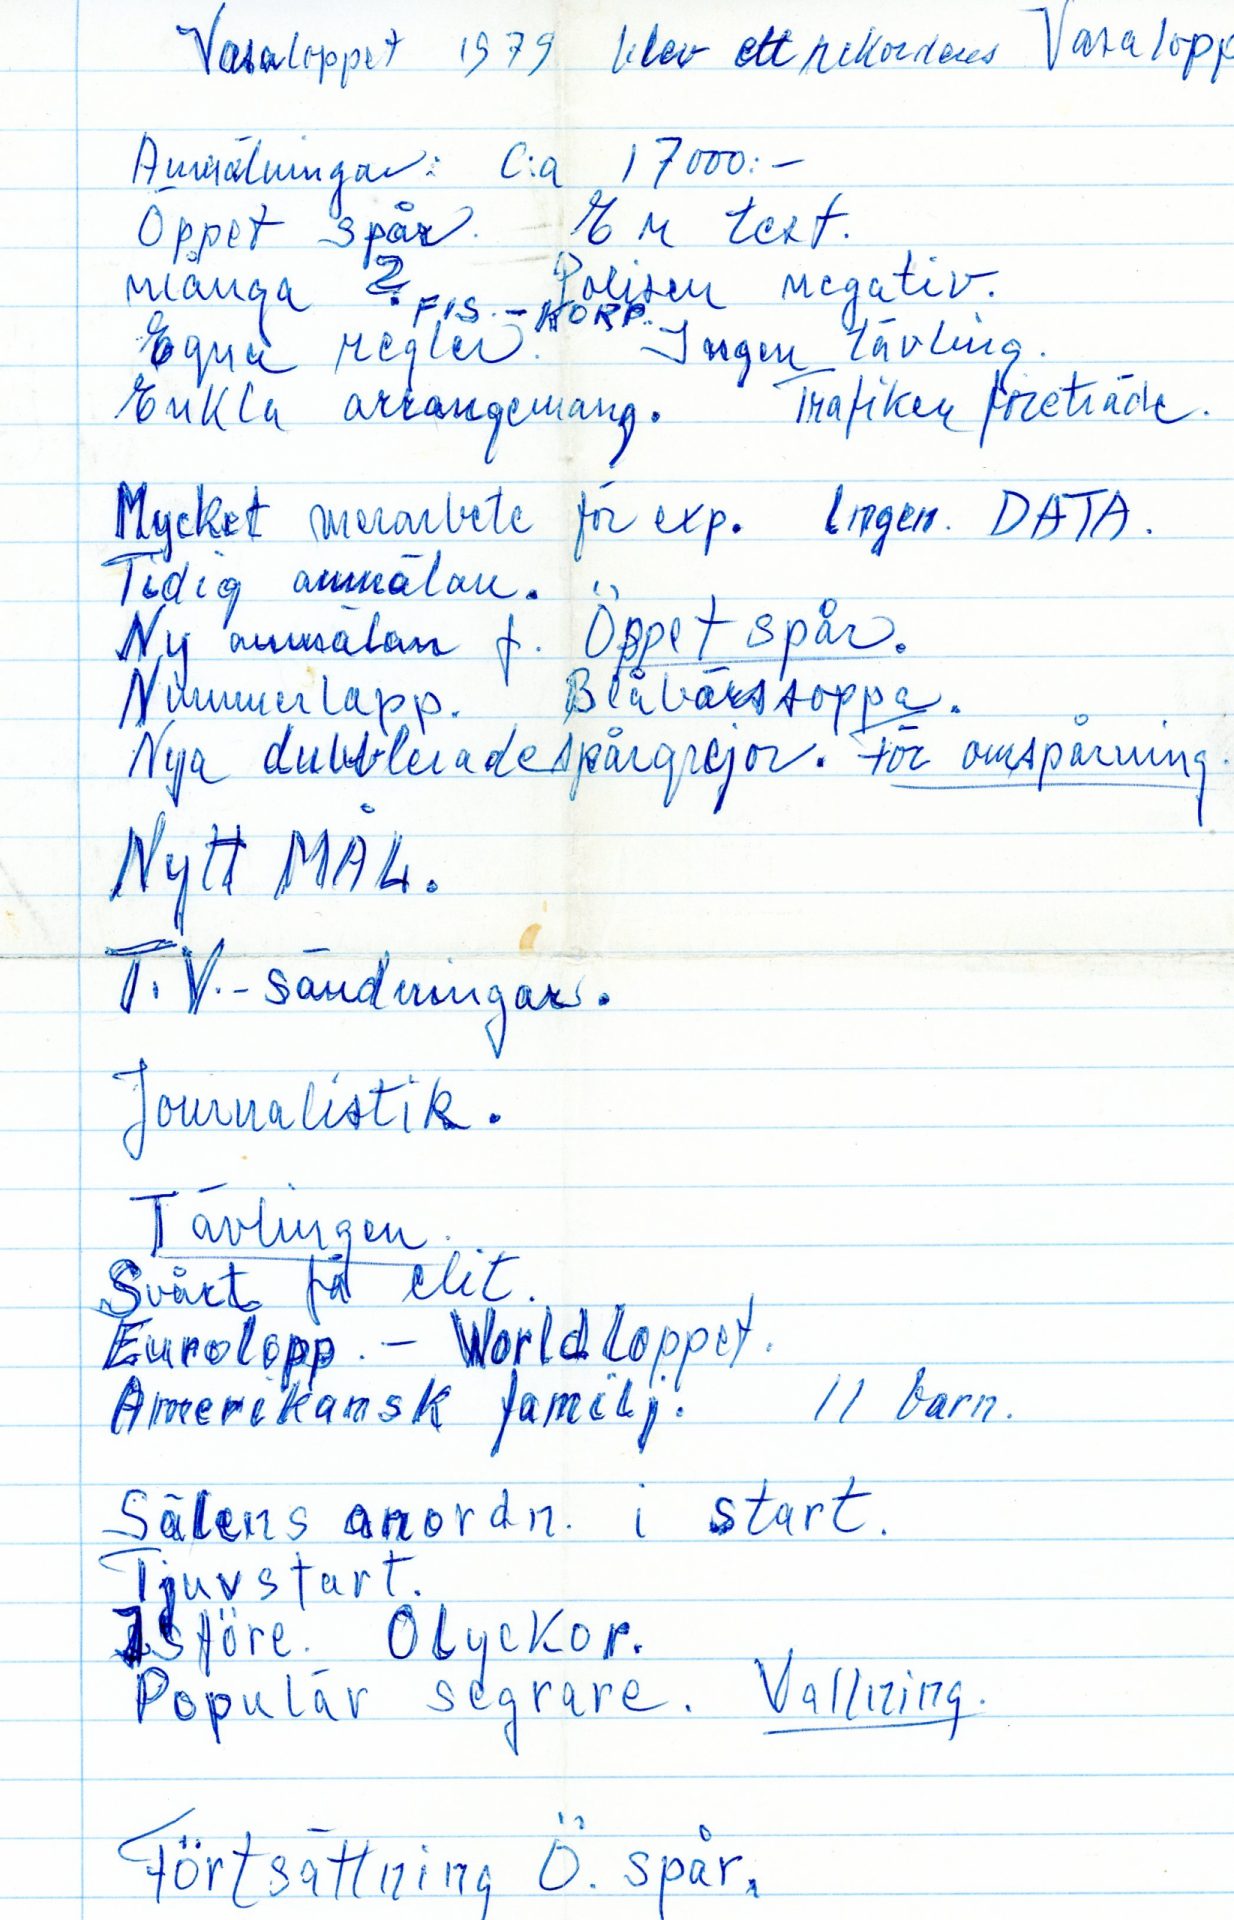 Vasaloppet 1979 blev ett rekordens Vasalopp
Anmälningar: C:a 17000:-
Öppet spår. En test.
många ? Polisen negativ.
FIS. - KORP.
Egna regler. Ingen tävling.
Enkla arrangemang. Trafiken företräde.
Mycket merarbete för exp. Ingen. DATA.
Tidig anmälan.
Ny anmälan f. Öppet spår.
Nummerlapp. Blåbärssoppa.
Nya dubblerade spårgrejor. För omspårning.
Nytt MÅL.
T.V.-sändningar.
Journalistik.
Tävlingen.
Svårt få elit.
Eurolopp. - Worldloppet.
Amerikansk familj. 11 barn.
Sälens anordn. i start.
Tjuvstart.
Isföre. Olyckor.
Populär segrare. Vallning.
Förtsättning Ö. spår.